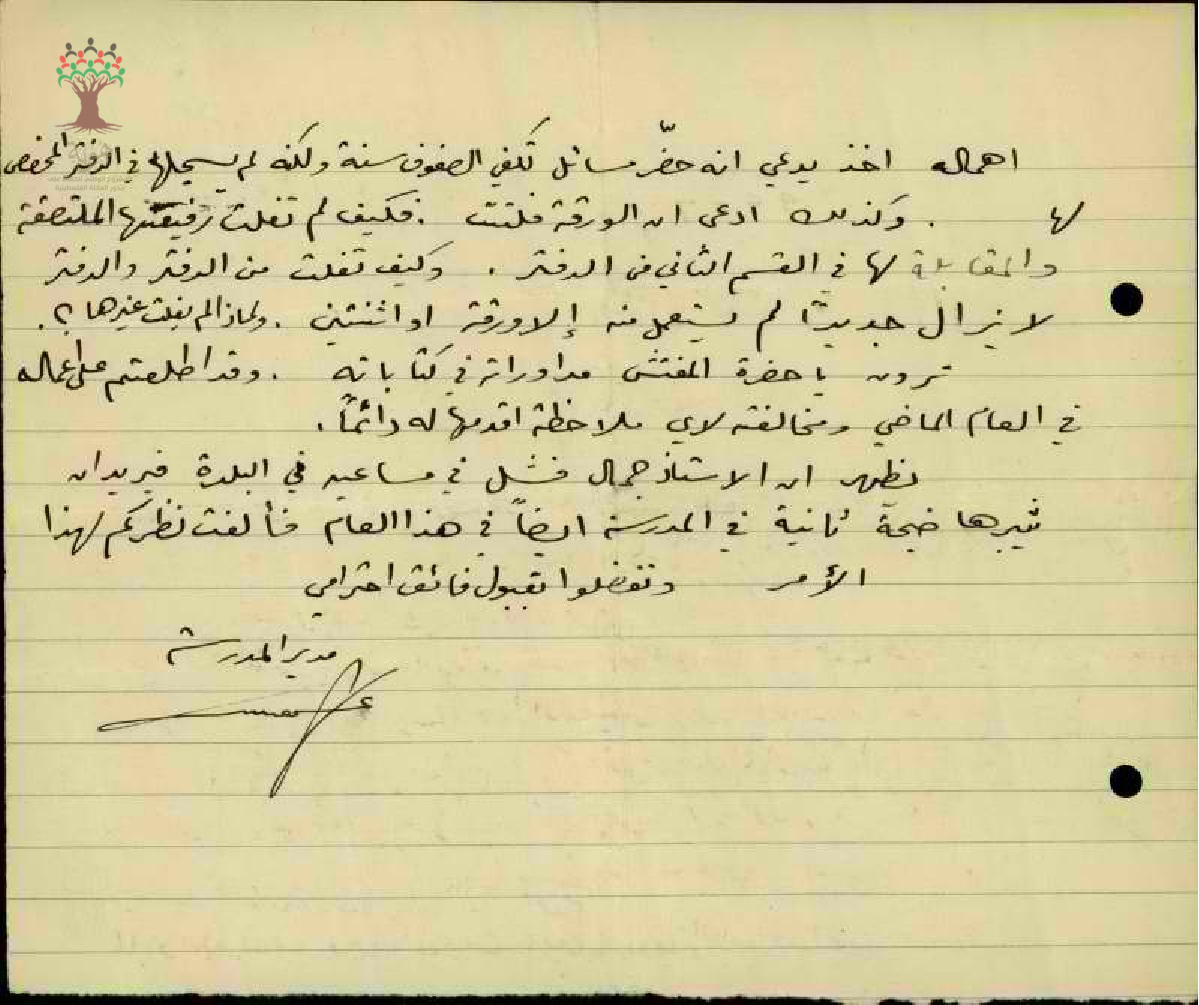 اهماله اخذ يدعي انه حضّر مسائل تكفي الصفوف سنة ولكنه لم يسجلها في الدفتر المخصص
لها . وكذلك ادعى ان الورقة فلتت . فكيف لم تفلت رفيقتها الملتصقة
والمقابلة لها في القسم الثاني من الدفتر . وكيف تفلت من الدفتر والدفتر
لا يزال جديداً لم يستعمل منه إلا ورقة او اثنتين . ولماذا لم يفلت غيرها ؟.
ترون يا حضرة المفتش مداوراته في كتاباته . وقد اطلعتم على اعماله
في العام الماضي ومخالفته لاي ملاحظة اقدمها له دائماً .
يظهر ان الاستاذ جمال فشل في مساعيه في البلدة فيريد ان
يثيرها ضجة ثانية في المدرسة ايضاً في هذا العام فألفت نظركم لهذا
الأمر وتفضلوا بقبول فائق احترامي
مدير المدرسة